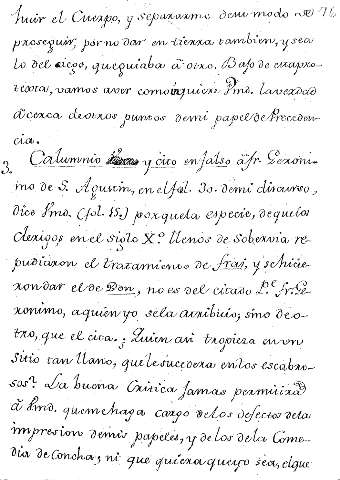 huir el Cuerpo, y separarme de su modo no
proseguir, por no dar en tierra tambien, y sea
lo del ciego, que guiaba á otro. Baxo de esta pro-
texta, vamos a ver como inquiere Pmd. la verdad
àcerca de otros puntos de mi papel de Preceden-
cia.
3. Calumnio yo y cito en falso à fr. Geroni-
mo de S. Agustin, en el fol. 30. de mi discurso,
dice Pmd. (fol. 15.) porque la especie, de que los
clerigos en el siglo X.º llenos de Sobervia re-
pudiaron el tratamiento de frai, y se hicie-
ron dar el de Don, no es del citado P.e fr. Ge-
ronimo, a quien yo se la atribuio; sino de o-
tro, que el cita. ¿Quien asi tropieza en un
sitio tan llano, que le sucedera en los escabro-
sos? La buena Critica jamas permitirá
á Pmd. que me haga cargo de los defectos de la
impresion de mis papeles, y de los de la Come-
dia de Concha; ni que quiera que yo sea, el que